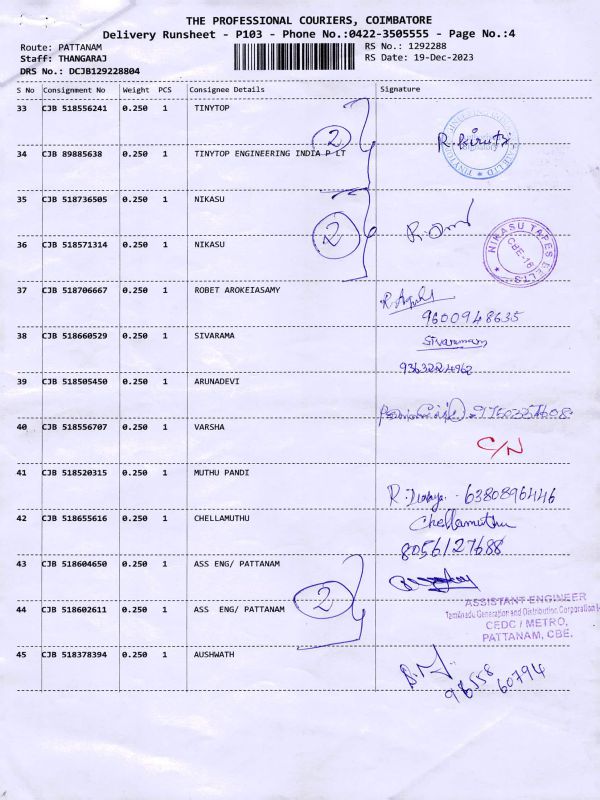 THE PROFESSIONAL COURIERS, COIMBATORE
Delivery Runsheet - P103 - Phone No.:0422-3505555 - Page No.:4
Route: PATTANAM RS No.: 1292288
Staff: THANGARAJ RS Date: 19-Dec-2023
DRS No.: DCJB129228804
S No Consignment No Weight PCS Consignee Details Signature
33 CJB 518556241 0.250 1 TINYTOP
2
34 CJB 89885638 0.250 1 TINYTOP ENGINEERING INDIA P LT
35 CJB 518736505 0.250 1 NIKASU
2
36 CJB 518571314 0.250 1 NIKASU
NIKASU TAPES BELTS
CBE-16
37 CJB 518706667 0.250 1 ROBET AROKEIASAMY
9600948635
38 CJB 518660529 0.250 1 SIVARAMA
Sivaramam
9363224962
39 CJB 518505450 0.250 1 ARUNADEVI
40 CJB 518556707 0.250 1 VARSHA
C/N
41 CJB 518520315 0.250 1 MUTHU PANDI
6380896446
42 CJB 518655616 0.250 1 CHELLAMUTHU
Chellamuthu
8056127688
43 CJB 518604650 0.250 1 ASS ENG/ PATTANAM
2
44 CJB 518602611 0.250 1 ASS ENG/ PATTANAM
ASSISTANT ENGINEER
TamilNadu Generation and Distribution Corporation
CEDC / METRO,
PATTANAM, CBE.
45 CJB 518378394 0.250 1 AUSHWATH
98558
60794